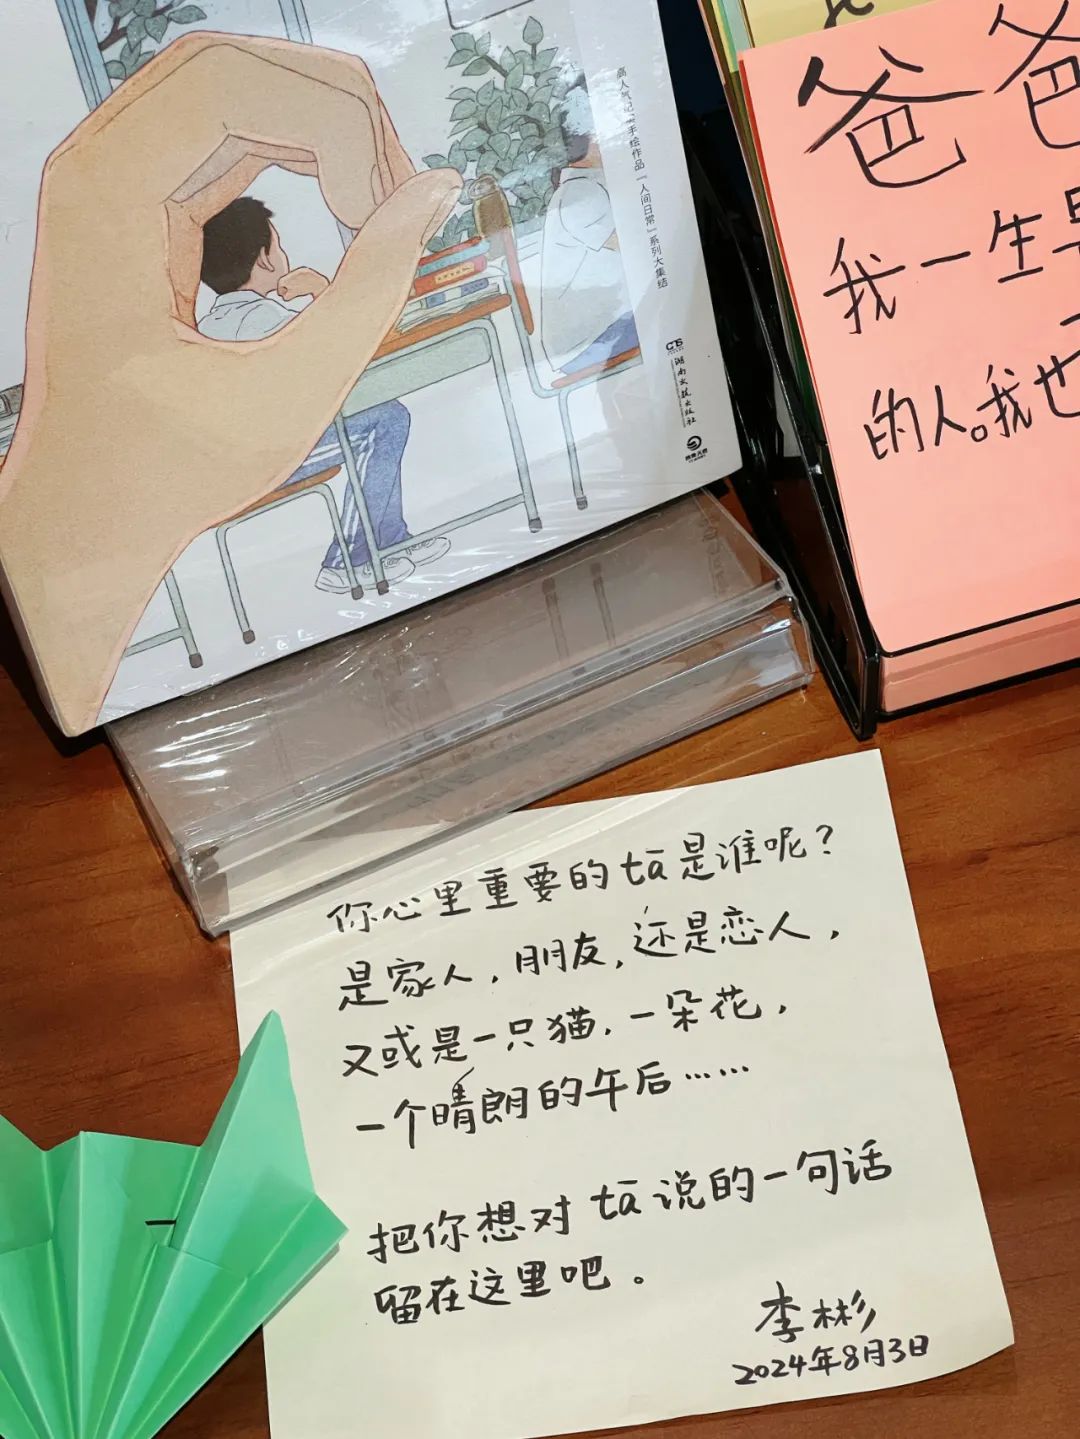 高人气纪实手绘作品「人间日常」系列大集结
湖南文艺出版社
爸爸
我一生
的人。我也
你心里重要的tā是谁呢？
是家人，朋友，还是恋人，
又或是一只猫，一朵花，
一个晴朗的午后……
把你想对tā说的一句话
留在这里吧。
李彬
2024年8月3日